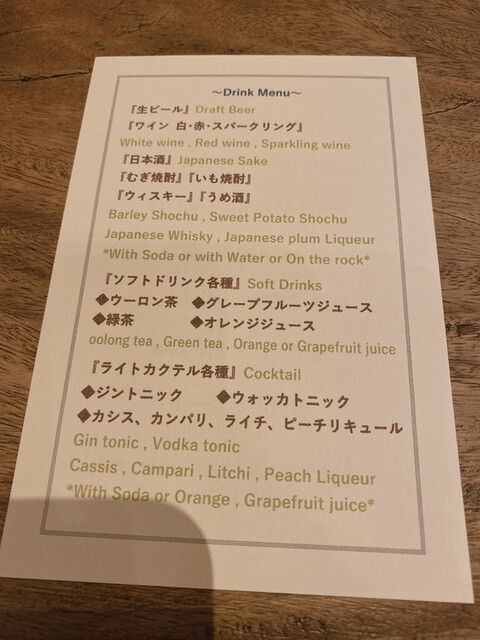 ~Drink Menu~
『生ビール』Draft Beer
『ワイン 白・赤・スパークリング』
White wine , Red wine , Sparkling wine
『日本酒』Japanese Sake
『むぎ焼酎』『いも焼酎』
『ウィスキー』『うめ酒』
Barley Shochu , Sweet Potato Shochu
Japanese Whisky , Japanese plum Liqueur
*With Soda or with Water or On the rock*
『ソフトドリンク各種』Soft Drinks
◆ウーロン茶 ◆グレープフルーツジュース
◆緑茶 ◆オレンジジュース
oolong tea , Green tea , Orange or Grapefruit juice
『ライトカクテル各種』Cocktail
◆ジントニック ◆ウォッカトニック
◆カシス、カンパリ、ライチ、ピーチリキュール
Gin tonic , Vodka tonic
Cassis , Campari , Litchi , Peach Liqueur
*With Soda or Orange , Grapefruit juice*